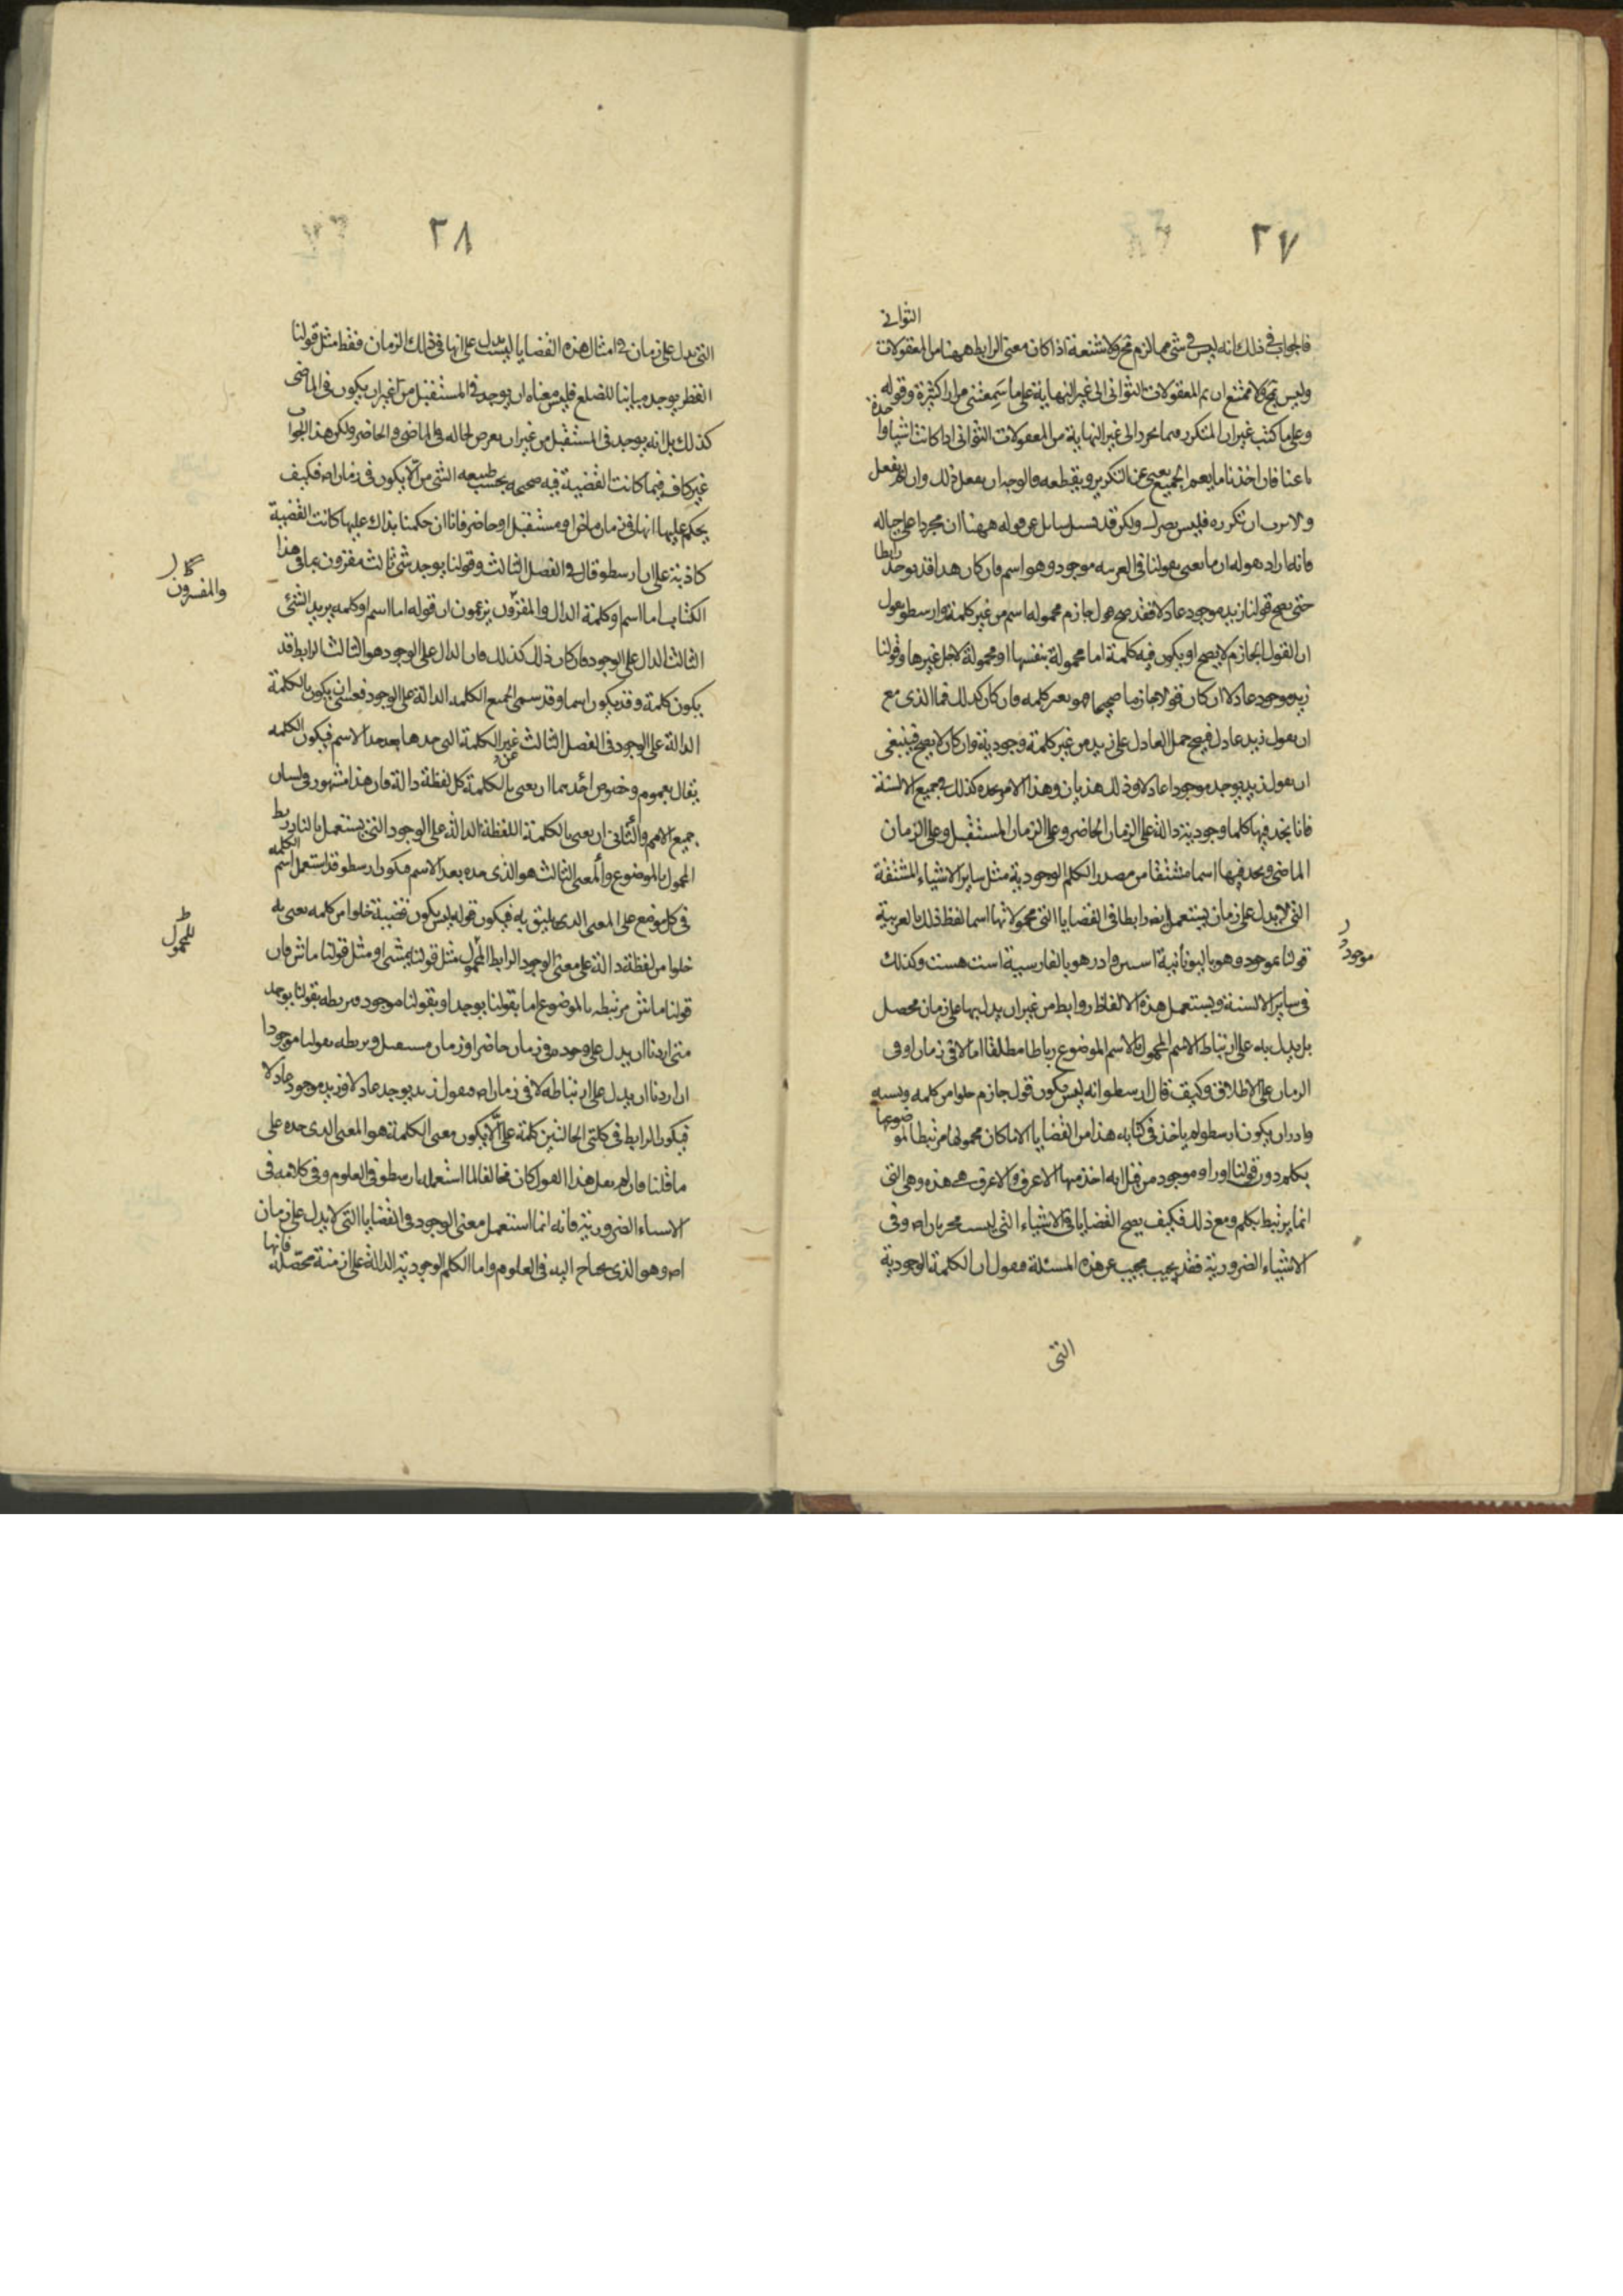 ٢٧
الثواني
فالجواب في ذلك انه ليس في شئ مما لزم محال ولا شنعة اذا كان معنى الرابط ههنا من المعقولات
وليس محالا ممتنع ان تمر المعقولات الثواني الى غير النهاية على ما سمعتني مرارا كثيرة وقوله
وعلى ما كتب غير ان المتكرر فيما الى غير النهاية من المعقولات الثواني اذا كانت اشياء واحدة
باعيانها فان اخذنا ما يعم الجميع يغني عن التكرير ويقطعه والوجه ان يفعل ذلك وان لم يفعل
ولكن قد يسئل سايل عن قوله ههنا ان مجردا على حياله
فانه اراد بقوله ان ما يعنى بقولنا في العربية موجود وهو اسم فان كان هذا قد يوجد رابطا
حتى يصح قولنا زيد موجود عادلا فقد صح قول جازم محموله اسم من غير كلمة وارسطو يقول
ان القول الجازم لا يصح او يكون فيه كلمة اما محمولة بنفسها او محمولة لاجل غيرها وقولنا
زيد موجود عادلا ان كان قولا جازما صحيحا فهو بغير كلمة وان كان كذلك فما الذي مع
ان يقول زيد عادل فيصح حمل العادل على زيد من غير كلمة وجودية وان كان لا يصح فينبغي
ان يقول زيد يوجد موجودا عادلا وذلك هذيان وهذا الامر نجده كذلك في جميع الالسنة
فانا نجد فيها كلما وجودية دالة على الزمان الحاضر وعلى الزمان المستقبل وعلى الزمان
الماضي ونجد فيها اسما مشتقا من مصدر الكلم الوجودية مثل ساير الاشياء المشتقة
التي لا يدل على زمان يستعمل ايضا رابطا في القضايا التي محمولاتها اسما لفظ ذلك بالعربية
قولنا موجود وهو باليونانية استين وادر هو بالفارسية است هست وكذلك
موجود
في ساير الالسنة ويستعمل هذه الالفاظ روابط من غير ان يدل بها على زمان محصل
بل يدل به على ارتباط الاسم المحمول بالاسم الموضوع رباطا مطلقا اما لا في زمان او في
الزمان على الاطلاق وكيف قال ارسطو انه ليس يكون قول جازم خلوا من كلمة
ان يكون ارسطو لم ياخذ في كتابه هذا من القضايا الا ما كان محمولها مرتبطا بموضوعها
بكلمة دون قولنا موجود من قبل انه اخذ منها الاعرف والاعرف هي هذه وهي التي
انما يرتبط بكلم ومع ذلك فكيف يصح القضايا في الاشياء التي ليست بزمان اص وفي
الاشياء الضرورية فقد يجيب مجيب عن هذه المسئلة فيقول ان الكلمة الوجودية
التي
٢٨
التي يدل على زمان في امثال هذه القضايا ليست يدل على انها في ذلك الزمان فقط مثل قولنا
القطر يوجد مباينا للضلع فليس معناه ان يوجد في المستقبل من غير ان يكون في الماضي
كذلك بل انه يوجد في المستقبل من غير ان يعرض لحاله في الماضي والحاضر ولكن هذا الجواب
غير كاف فيما كانت القضية فيه صحيحة بحسب طبيعة الشئ من ان لا يكون في زمان اص فكيف
يحكم عليها انها في زمان ماض او مستقبل او حاضر فانا ان حكمنا بذاك عليها كانت القضية
كاذبة على ان ارسطو قال في الفصل الثالث وقولنا يوجد شئ ثالث مقرون بما في هذا
والمفسرون
الكتاب اما اسم او كلمة الدال والمفسرون يزعمون ان قوله اما اسم او كلمة يريد الشئ
الثالث الدال على الوجود فان كان ذلك كذلك فان الدال على الوجود هو الثالث الرابط قد
يكون كلمة وقد يكون اسما وقد سمى الجميع الكلمة الدالة على الوجود فعسى ان يكون بالكلمة
الدالة على الوجود في الفصل الثالث غير الكلمة التي حدها بعد حد الاسم فيكون الكلمة
يقال بعموم وخصوص احدهما ان يعنى بالكلمة كل لفظة دالة فان هذا مشهور في لسان
جميع الامم والثاني ان يعنى بالكلمة اللفظة الدالة على الوجود التي يستعمل بالنا ربط
المحمول بالموضوع والمعنى الثالث هو الذي حده بعد الاسم فيكون ارسطو قد استعمل اسم الكلمة
في كل موضع على المعنى الذي يليق به فيكون قوله ليس يكون قضية خلوا من كلمة يعنى به
خلوا من لفظة دالة على معنى الوجود الرابط المحمول مثل قولنا يمشي او مثل قولنا ماش فان
للمحمول
قولنا ماش مرتبطه بالموضوع اما بقولنا يوجد او بقولنا موجود ونربطه بقولنا يوجد
متى اردنا ان يدل على وجوده في زمان حاضر او زمان مستقبل ونربطه بقولنا موجودا
ان اردنا ان يدل على ارتباطه لا في زمان اص فيقول زيد يوجد عادلا وزيد موجود عادلا
فيكون الرابط في كلتي الحالتين كلمة على الا يكون معنى الكلمة هو المعنى الذي حده على
ما قلنا فان لم نقل هذا القول كان مخالفا لما استعمله ارسطو في العلوم وفي كلامه في
الاشياء الضرورية فانه انما استعمل معنى الوجود في القضايا التي لا يدل على زمان
اص وهو الذي يحتاج اليه في العلوم واما الكلم الوجودية الدالة على ازمنة محصلة فانها